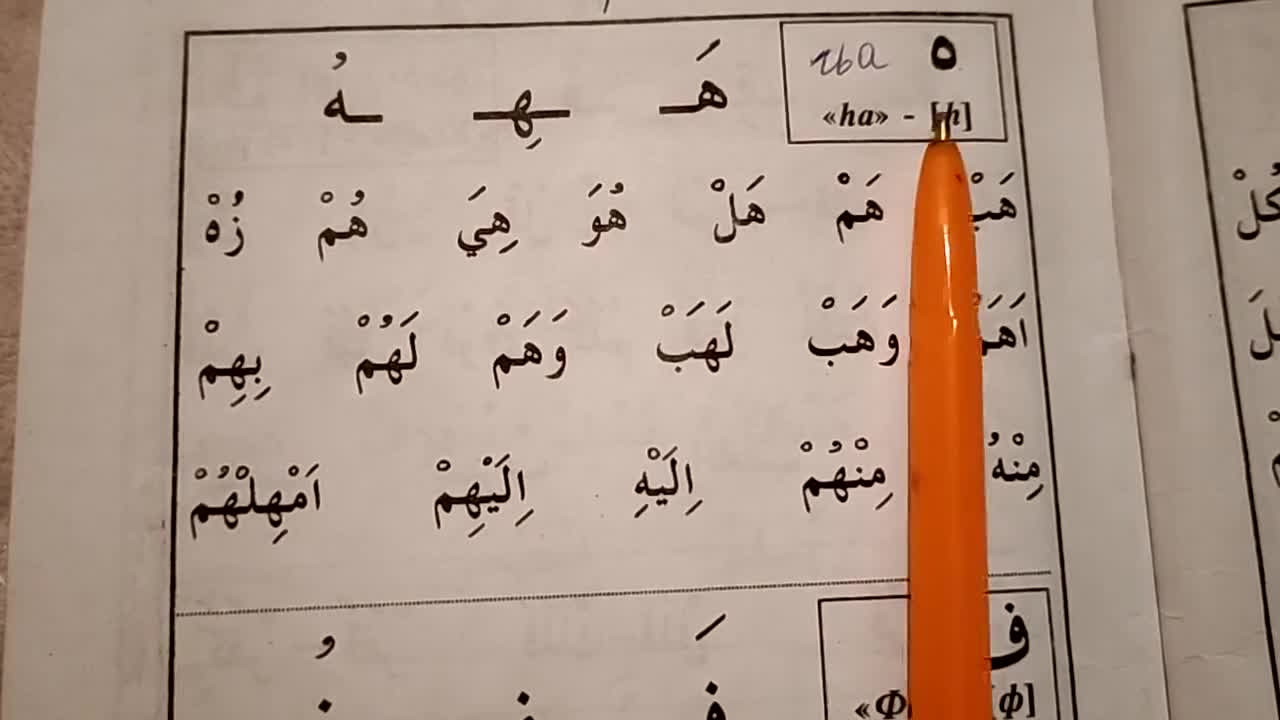 ه иhа
«ha» - [h]
هَـ ـهِـ ـهُ
هَبْ هَمْ هَلْ هُوَ هِيَ هُمْ زُهْ
وَهَبْ لَهَبْ وَهَمْ لَهُمْ بِهِمْ
مِنْهُ مِنْهُمْ اِلَيْهِ اِلَيْهِمْ اَمْهِلْهُمْ
ف
[ф]
كُلْ